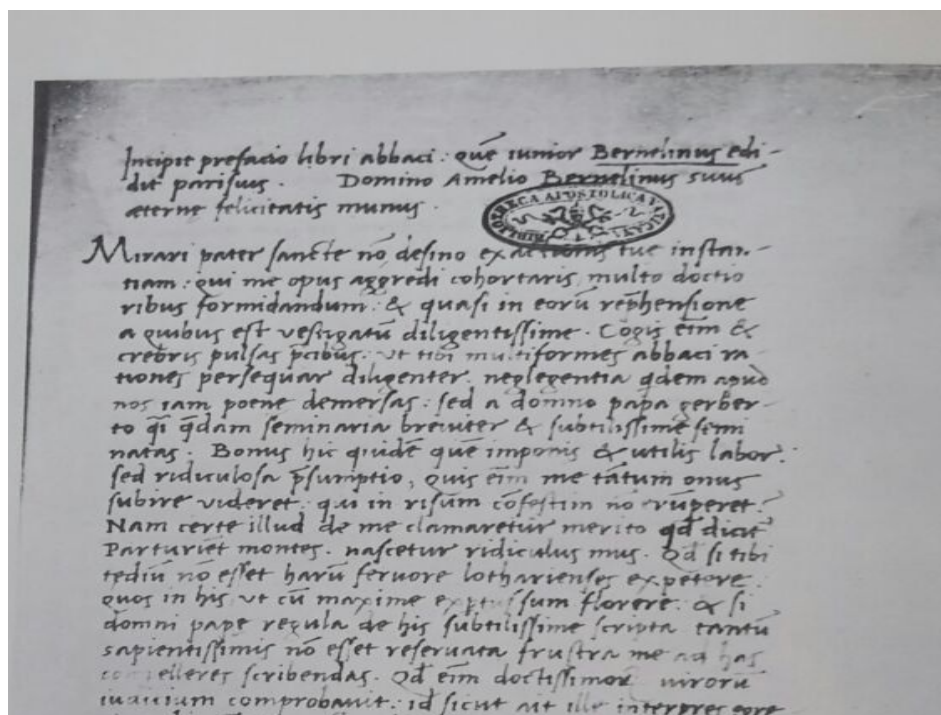 Incipit prefacio libri abbaci. quē iunior Bernelinus edi-
dit parisius. Domino Amelio Bernelinus suus
æterne felicitatis munus.
BIBLIOTHECA APOSTOLICA VATICANA
Mirari pater sancte nō desino exactionis tue instan-
tiam: qui me opus aggredi cohortaris multo doctio
ribus formidandum: & quasi in eorū rep̄hensione
a quibus est vestigatū diligentissime. Cogis eīm &
crebris pulsas p̄cibus. vt tibi multiformes abbaci ra
tiones persequar diligenter, neglegentia qdem apud
nos iam poene demersas: sed a domno papa gerber-
to q̄i q̄dam seminaria breuiter & subtilissime semi
natas. Bonus hic quidē quē imponis & utilis labor:
sed ridiculosa p̄sumptio, quis eīm me tātum onus
subire videret: qui in risum cōfestim nō rūperet?
Nam certe illud de me clamaretur merito qd̄ dicit̄
Parturiēt montes. nascetur ridiculus mus. Qd̄ si tibi
tediū nō esset harū feruore lotharienses expetere:
quos in his vt cū maxime exptus sum florere: & si
domni pape regula de his subtilissime scripta tantū
sapientissimis nō esset reseruata frustra me ad has
compelleres scribendas. Qd̄ eīm doctissimor virorū
iudicium comprobauit: id sicut ait ille interpres